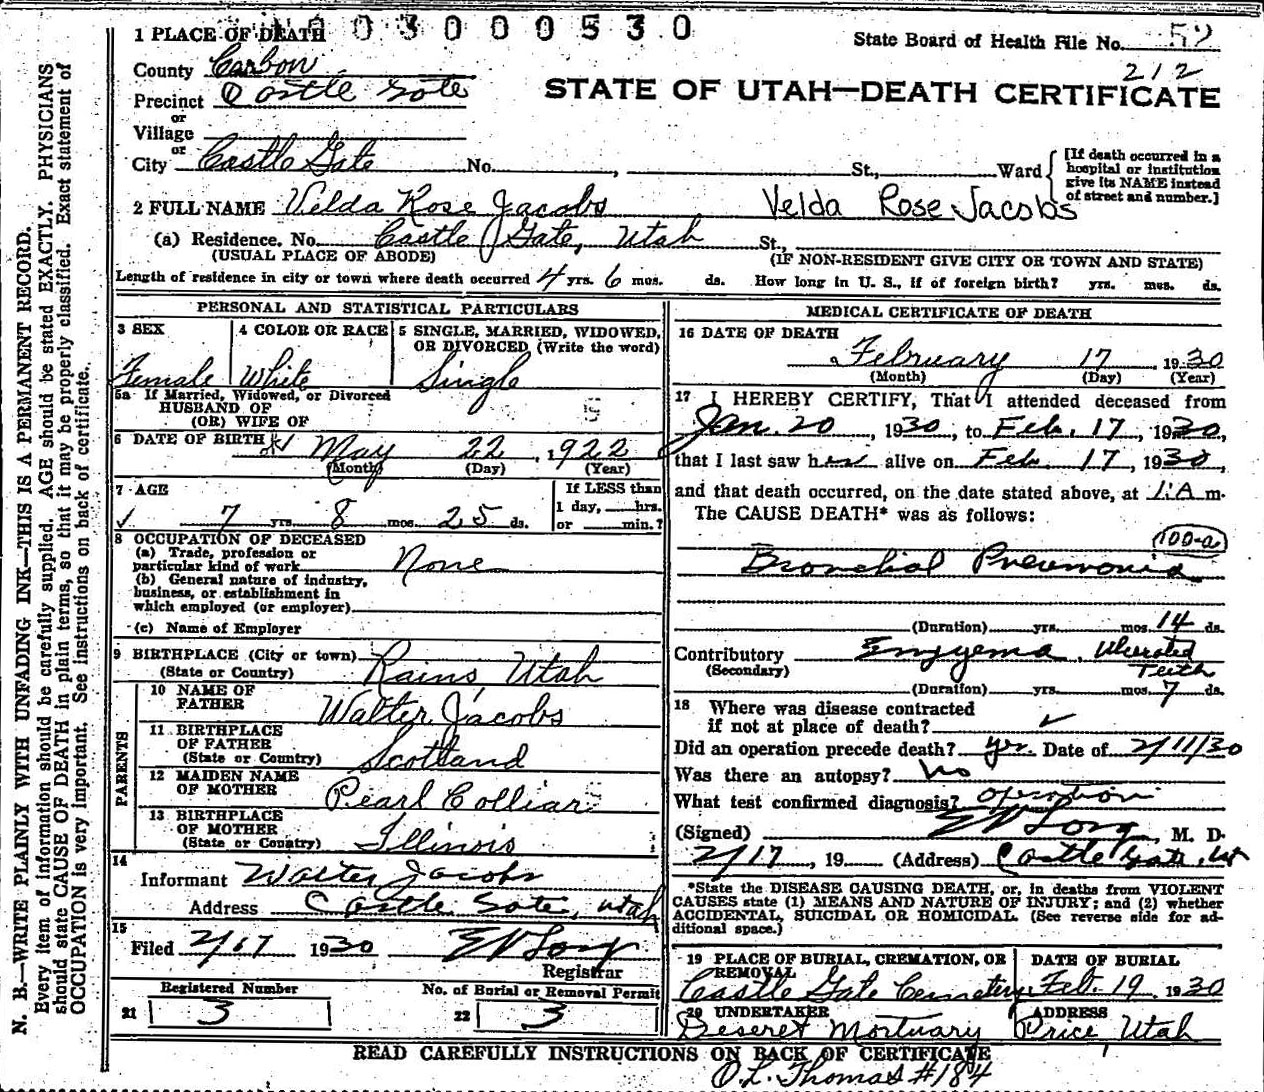 03000530
1 PLACE OF DEATH
State Board of Health File No. 52
212
County Carbon
STATE OF UTAH—DEATH CERTIFICATE
Precinct Castle Gate
or
Village
or
City Castle Gate No. , St., Ward
[If death occurred in a hospital or institution give its NAME instead of street and number.]
2 FULL NAME Velda Rose Jacobs Velda Rose Jacobs
(a) Residence. No. Castle Gate, Utah St.,
(USUAL PLACE OF ABODE) (IF NON-RESIDENT GIVE CITY OR TOWN AND STATE)
Length of residence in city or town where death occurred 4 yrs. 6 mos. ds. How long in U. S., if of foreign birth? yrs. mos. ds.
PERSONAL AND STATISTICAL PARTICULARS
3 SEX
Female
4 COLOR OR RACE
White
5 SINGLE, MARRIED, WIDOWED,
OR DIVORCED (Write the word)
Single
5a If Married, Widowed, or Divorced
HUSBAND OF
(OR) WIFE OF
6 DATE OF BIRTH May 22, 1922
(Month) (Day) (Year)
7 AGE
7 yrs. 8 mos. 25 ds.
If LESS than
1 day, hrs.
or min.?
8 OCCUPATION OF DECEASED
(a) Trade, profession or
particular kind of work None
(b) General nature of industry,
business, or establishment in
which employed (or employer)
(c) Name of Employer
9 BIRTHPLACE (City or town) Rains, Utah
(State or Country)
PARENTS
10 NAME OF
FATHER Walter Jacobs
11 BIRTHPLACE
OF FATHER
(State or Country) Scotland
12 MAIDEN NAME
OF MOTHER Pearl Colliar
13 BIRTHPLACE
OF MOTHER
(State or Country) Illinois
14
Informant Walter Jacobs
Address Castle Gate, Utah
15
Filed 2/17 1930 E V Long
Registrar
Registered Number
21 3
No. of Burial or Removal Permit
22 3
MEDICAL CERTIFICATE OF DEATH
16 DATE OF DEATH
February 17 1930
(Month) (Day) (Year)
17 I HEREBY CERTIFY, That I attended deceased from
Jan. 20, 1930, to Feb. 17, 1930,
that I last saw her alive on Feb. 17, 1930,
and that death occurred, on the date stated above, at 1:A m.
The CAUSE DEATH* was as follows:
100-a
Bronchial Pneumonia
(Duration) yrs. mos. 14 ds.
Contributory Empyema, Ulcerated
(Secondary) Teeth
(Duration) yrs. mos. 7 ds.
18 Where was disease contracted
if not at place of death? ✓
Did an operation precede death? yes. Date of 2/11/30
Was there an autopsy? No
What test confirmed diagnosis? operation
(Signed) E V Long, M. D.
2/17, 19 (Address) Castle Gate, Ut
*State the DISEASE CAUSING DEATH, or, in deaths from VIOLENT
CAUSES state (1) MEANS AND NATURE OF INJURY; and (2) whether
ACCIDENTAL, SUICIDAL OR HOMICIDAL. (See reverse side for ad-
ditional space.)
19 PLACE OF BURIAL, CREMATION, OR
REMOVAL
Castle Gate Cemetery
DATE OF BURIAL
Feb. 19 1930
20 UNDERTAKER
Deseret Mortuary
ADDRESS
Price, Utah
READ CAREFULLY INSTRUCTIONS ON BACK OF CERTIFICATE
O.L. Thomas #184
N. B.—WRITE PLAINLY WITH UNFADING INK—THIS IS A PERMANENT RECORD.
Every item of information should be carefully supplied. AGE should be stated EXACTLY. PHYSICIANS
should state CAUSE OF DEATH in plain terms, so that it may be properly classified. Exact statement of
OCCUPATION is very important. See instructions on back of certificate.